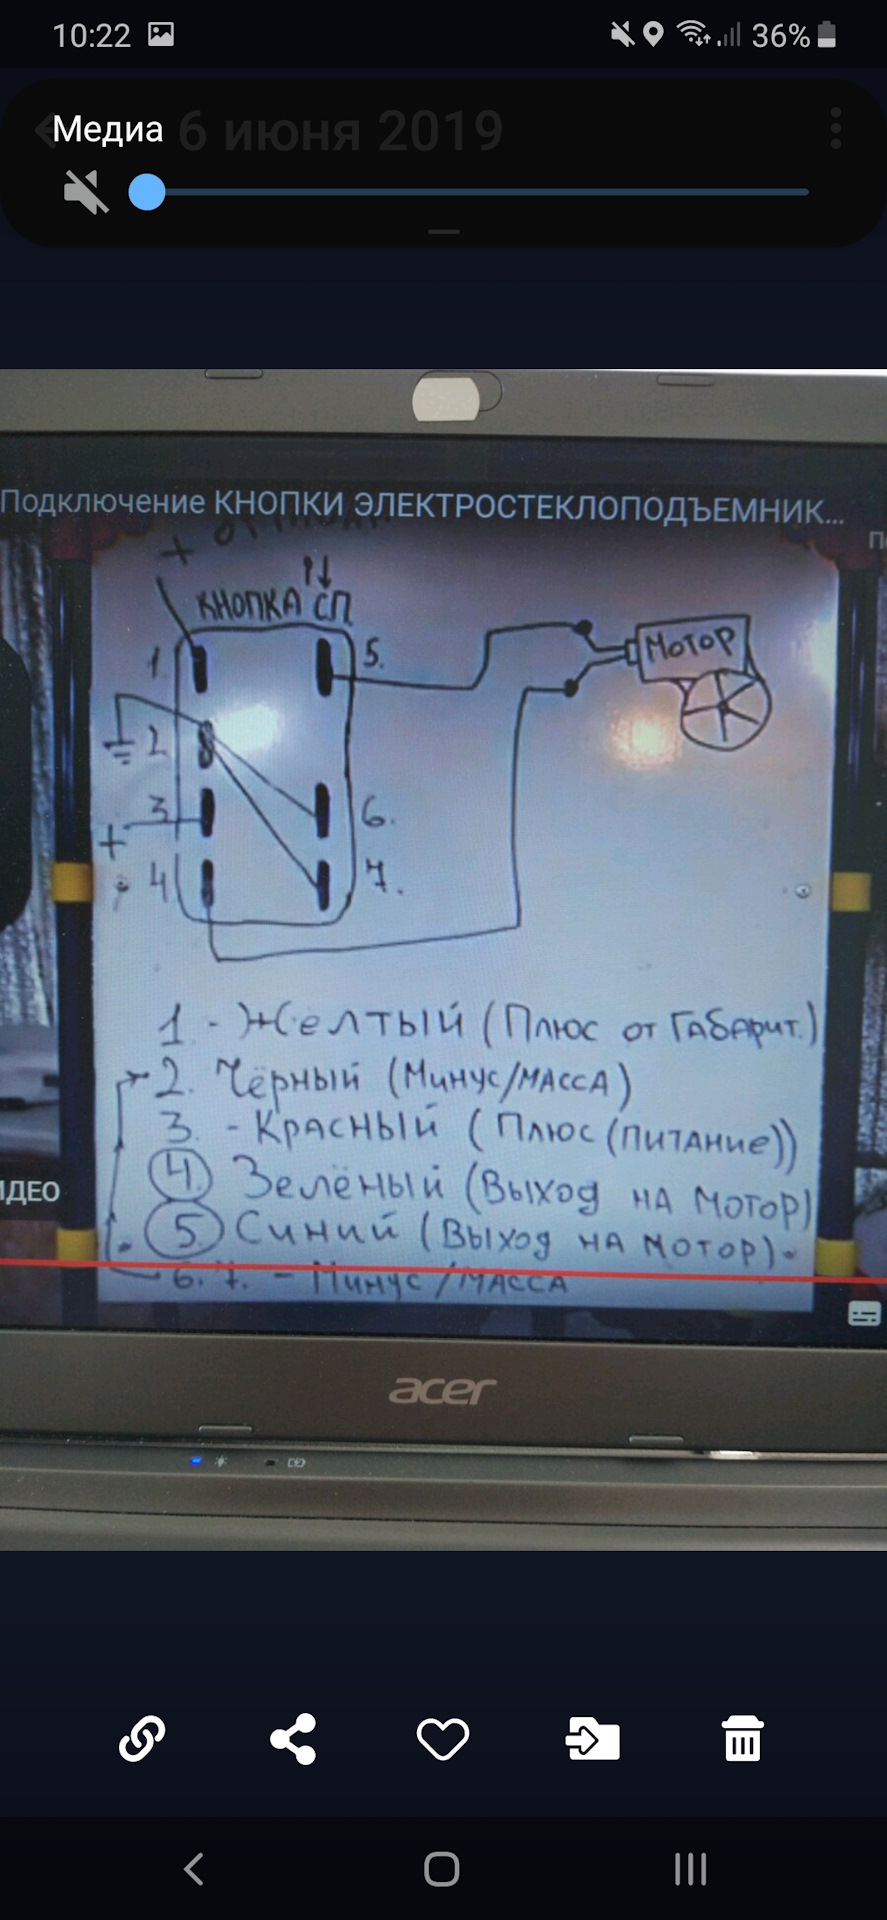 10:22
36%
6 июня 2019
Медиа
Подключение КНОПКИ ЭЛЕКТРОСТЕКЛОПОДЪЕМНИК...
+ от
КНОПКА СП
1.
5.
МОТОР
2
3
6.
+
4
7.
1. - Желтый (Плюс от Габарит.)
2. Чёрный (Минус/масса)
3. - Красный (Плюс (питание))
4. Зелёный (Выход на мотор)
ИДЕО
5. Синий (Выход на мотор).
6. 7. - Минус/масса
acer